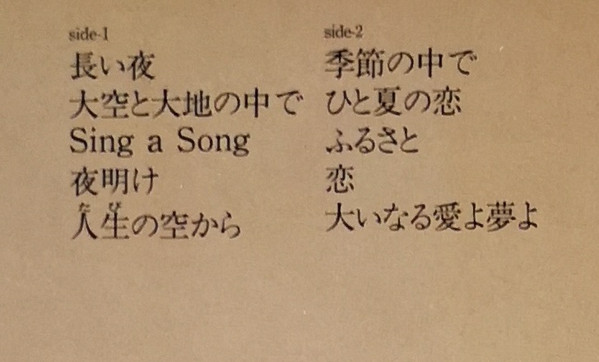 side-1
長い夜
大空と大地の中で
Sing a Song
夜明け
人生の空から
たび
side-2
季節の中で
ひと夏の恋
ふるさと
恋
大いなる愛よ夢よ